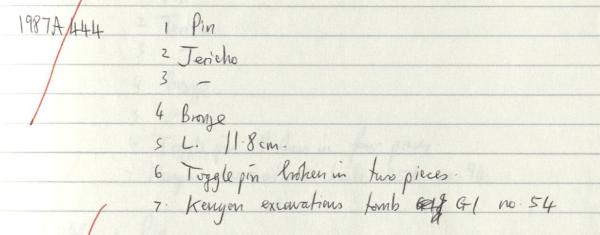 1987A 444 1 Pin
2 Jericho
3 –
4 Bronze
5 L. 11.8cm.
6 Toggle pin broken in two pieces.
7. Kenyon excavations tomb G1 no. 54